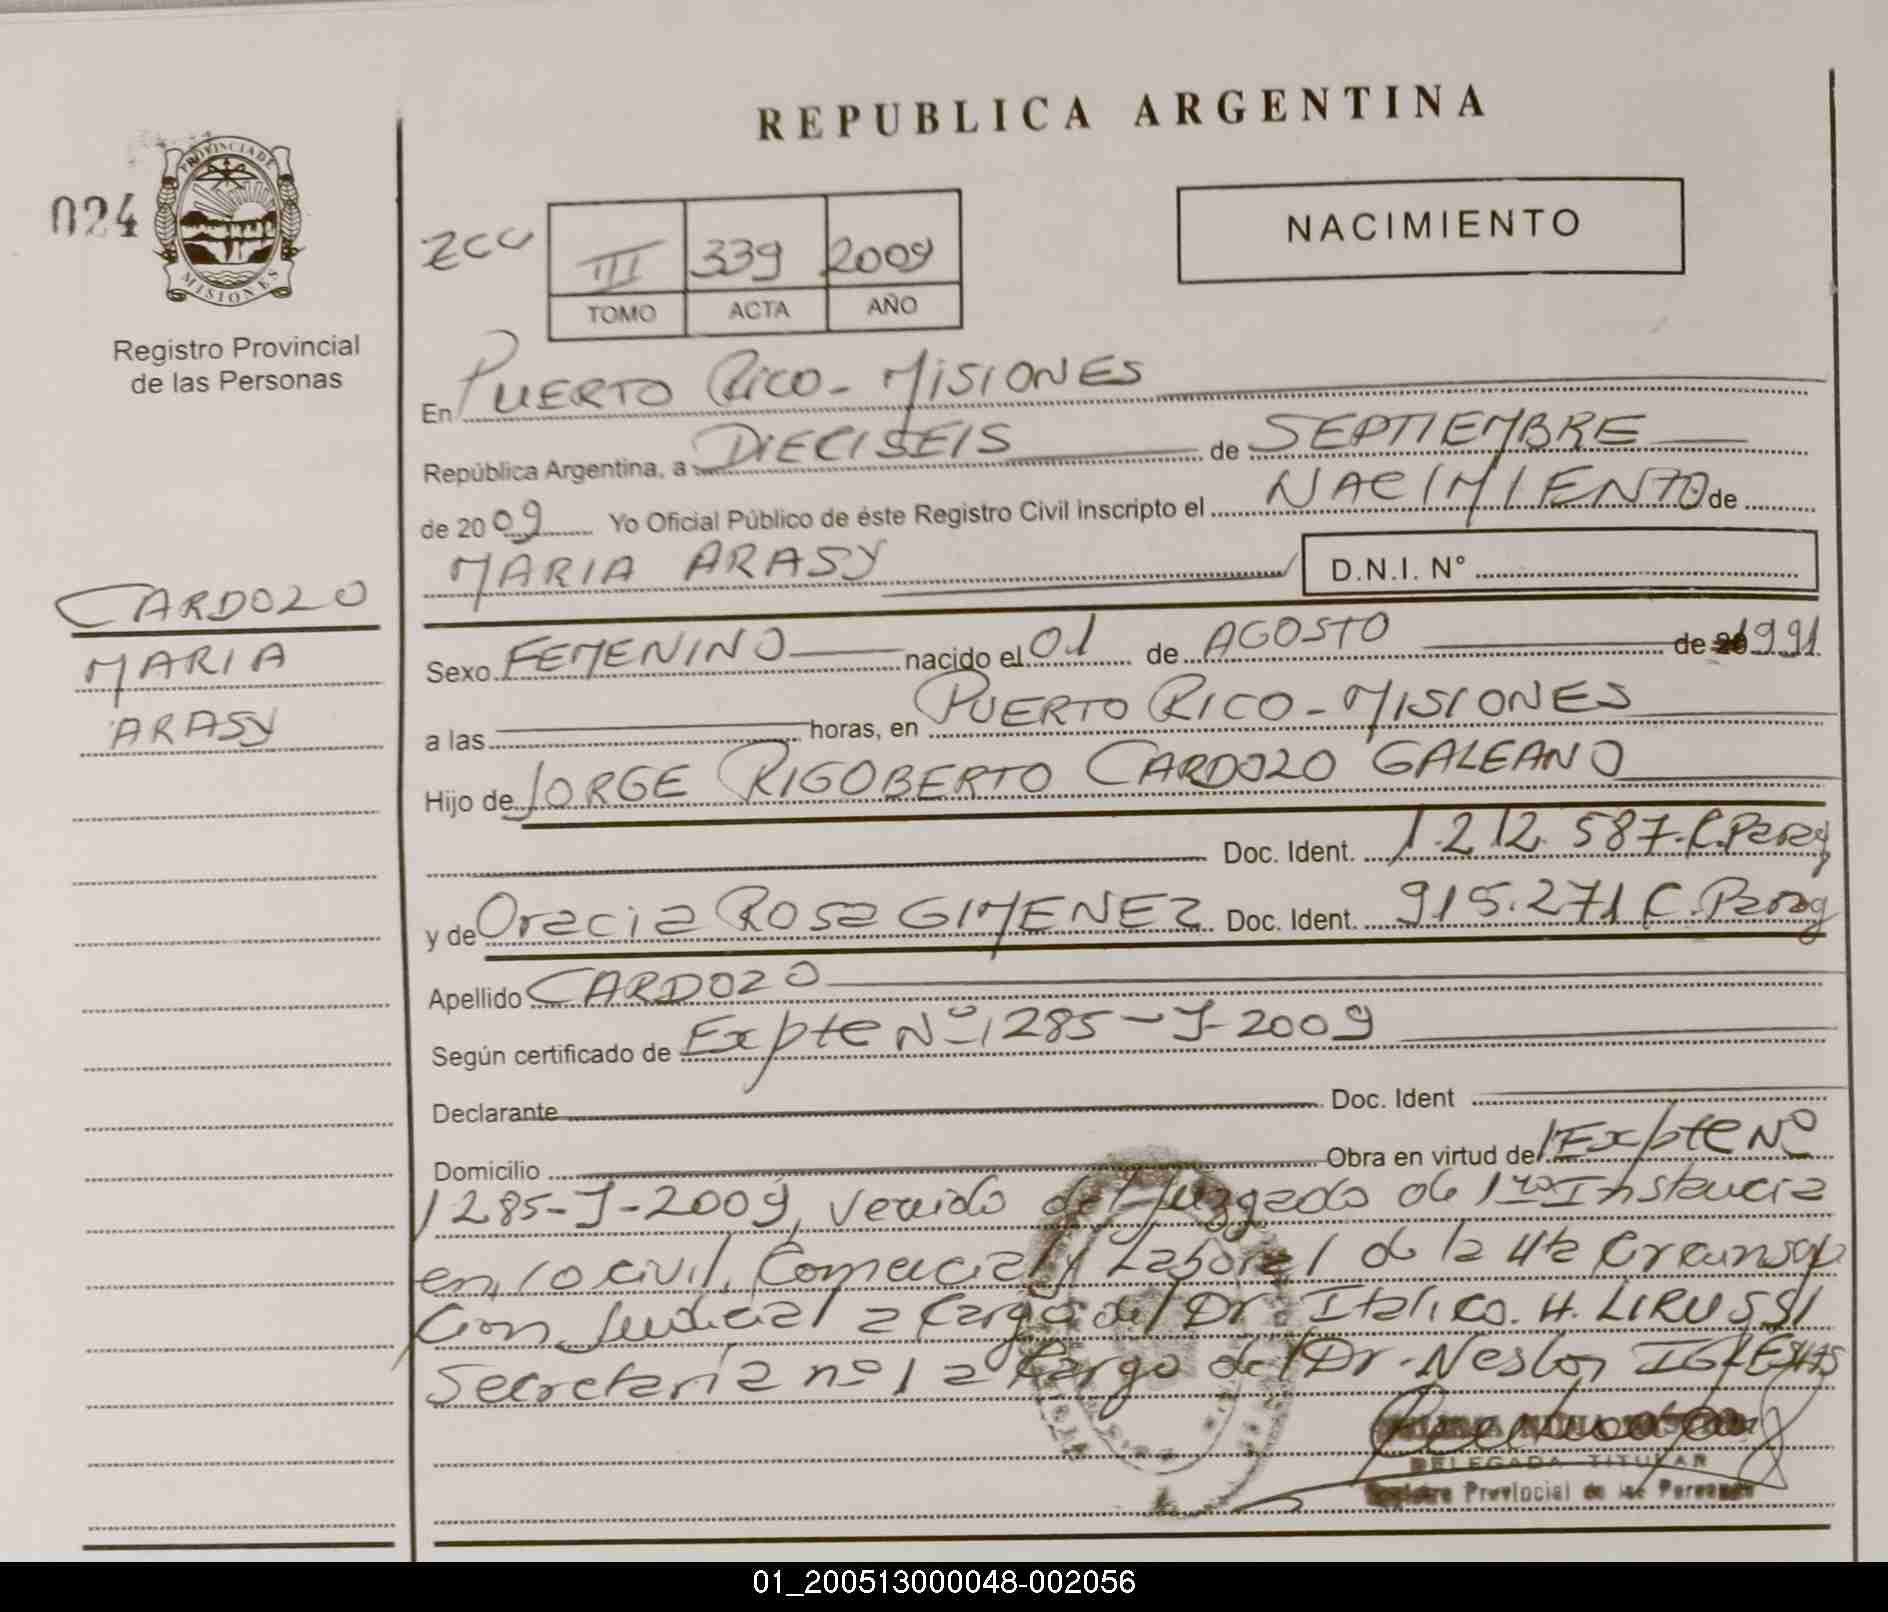 REPUBLICA ARGENTINA
024
PROVINCIA DE
MISIONES
Registro Provincial
de las Personas
NACIMIENTO
III 339 2009
TOMO ACTA AÑO
En PUERTO RICO - MISIONES
República Argentina, a DIECISEIS de SEPTIEMBRE
de 2009 Yo Oficial Público de éste Registro Civil inscripto el NACIMIENTO de
MARIA ARASY D.N.I. Nº
CARDOZO
MARIA
ARASY
Sexo FEMENINO nacido el 01 de AGOSTO de 1991
a las horas, en PUERTO RICO - MISIONES
Hijo de JORGE RIGOBERTO CARDOZO GALEANO
Doc. Ident. 1.212.587.C.Parag
y de Oracia Rosa GIMENEZ Doc. Ident. 915.271 C. Parag
Apellido CARDOZO
Según certificado de Expte Nº 1285-J-2009
Declarante Doc. Ident
Domicilio Obra en virtud de Expte Nº
1285-J-2009, venido del Juzgado de 1ra Instancia
en lo civil, Comercial y Laboral de la 4ta Circunscrip
cion Judicial a cargo del Dr. Italico. H. LIRUSSI
Secretaría nº 1 a cargo del Dr. Nestor IGLESIAS
DELEGADA TITULAR
Registro Provincial de las Personas
01_200513000048-002056